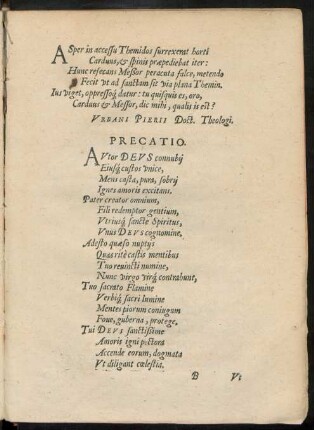 ASper in accessu Themidos surrexerat horti
Carduus, & spinis præpediebat iter:
Hunc resecans Messor peracuta falce, metendo
Fecit vt ad sanctam sit via plana Themin.
Ius viget, oppressoq́ datur: tu quisquis es, oro,
Carduus & Messor, dic mihi, qualis is est?
VRBANI PIERII Doct. Theologi.
PRECATIO.
AVtor DEVS connubij
Eiusq́ custos vnice,
Mens casta, pura, sobrij
Ignes amoris excitans.
Pater creator omnium,
Fili redemptor gentium,
Vtriusq́ sancte Spiritus,
Vnus DEVS cognomine.
Adesto quæso nuptijs
Quas ritè castis mentibus
Tuo reuincti numine,
Nunc virgo virq́ contrahunt,
Tuo sacrato Flamine
Verbiq́ sacri lumine
Mentes piorum coniugum
Foue, guberna, protege,
Tui DEVS sanctissime
Amoris igni pectora
Accende eorum, dogmata
Vt diligant cœlestia.
B Vt